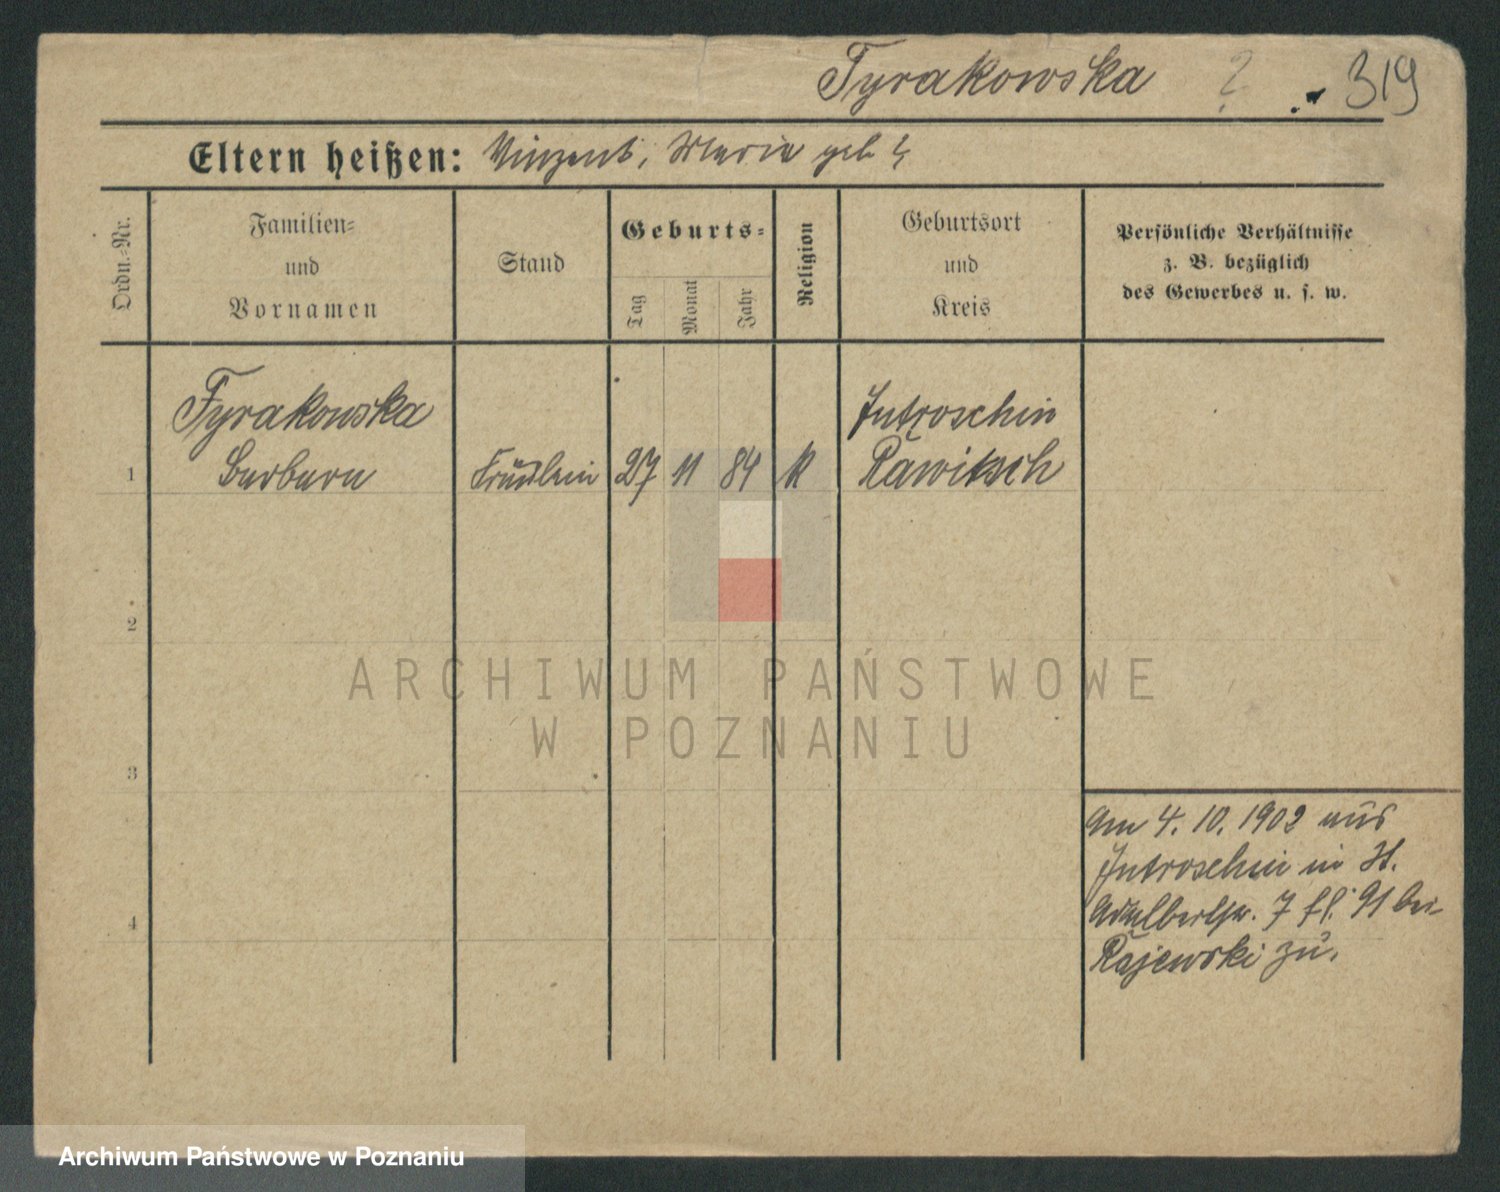 Tyrakowska ? 319
Eltern heißen: Vinzent, Maria geb ?
Ordn.-Nr.
Familien-
und
Vornamen
Stand
Geburts-
Tag
Monat
Jahr
Religion
Geburtsort
und
Kreis
Persönliche Verhältnisse
z. B. bezüglich
des Gewerbes u. s. w.
Tyrakowska
Jutroschin
1 Barbara Fräulein 27 11 84 k Rawitsch
2
3
4
Am 4. 10. 1902 aus
Jutroschin in St.
Adalbertstr. 7 fl. 91 bei
Rajewski zu.
ARCHIWUM PAŃSTWOWE
W POZNANIU
Archiwum Państwowe w Poznaniu